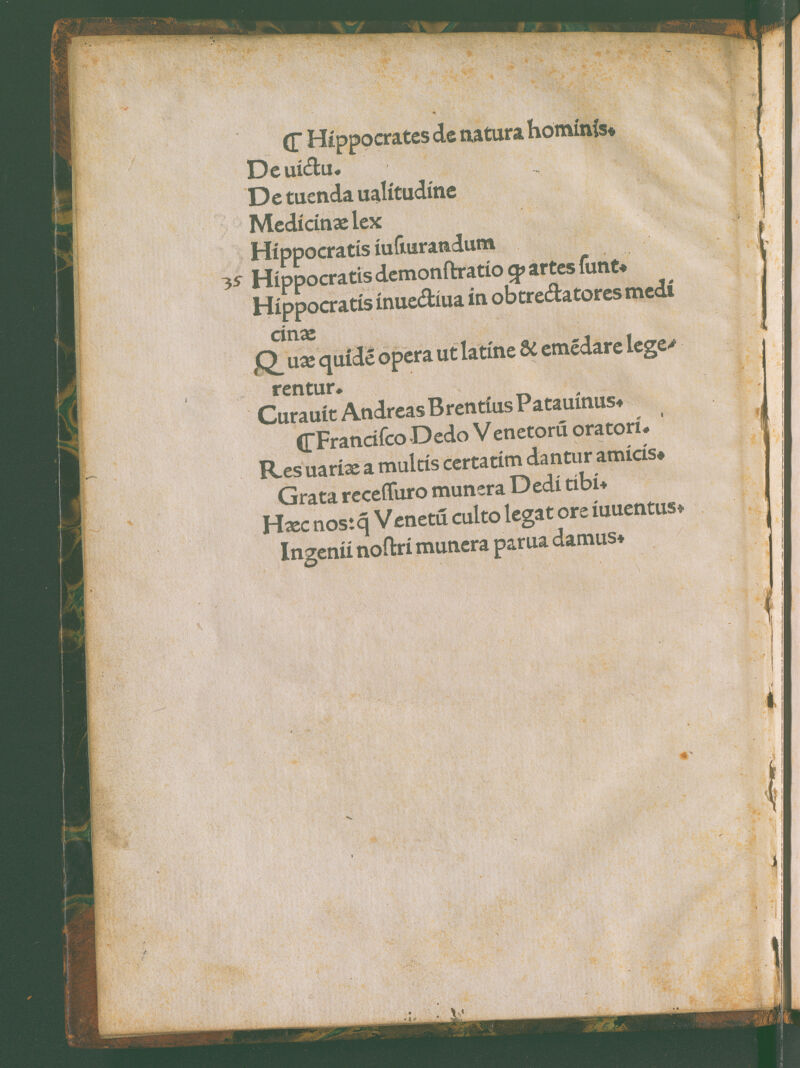 ❡ Hippocrates de natura hominis.
De uictu.
De tuenda ualitudine
Medicinæ lex
Hippocratis iuſiurandum
35 Hippocratis demonſtratio ꝙ artes ſunt.
Hippocratis inuectiua in obtrectatores medi
cinæ
Quæ quidē opera ut latine & emēdare lege⸗
rentur.
Curauit Andreas Brentius Patauinus.
❡ Franciſco Dedo Venetorū oratori.
Res uariæ a multis certatim dantur amicis.
Grata receſſuro munera Dedi tibi.
Hæc nos: q̃ Venetū culto legat ore iuuentus.
Ingenii noſtri munera parua damus.